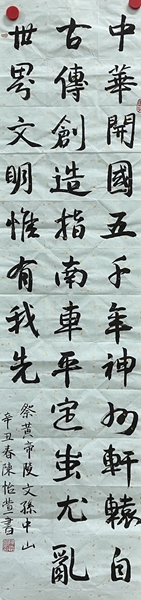 中華開國五千年神州軒轅自
古傳創造指南車平定蚩尤亂
世界文明惟有我先
祭黃帝陵文孫中山
辛丑春陳怡萱書